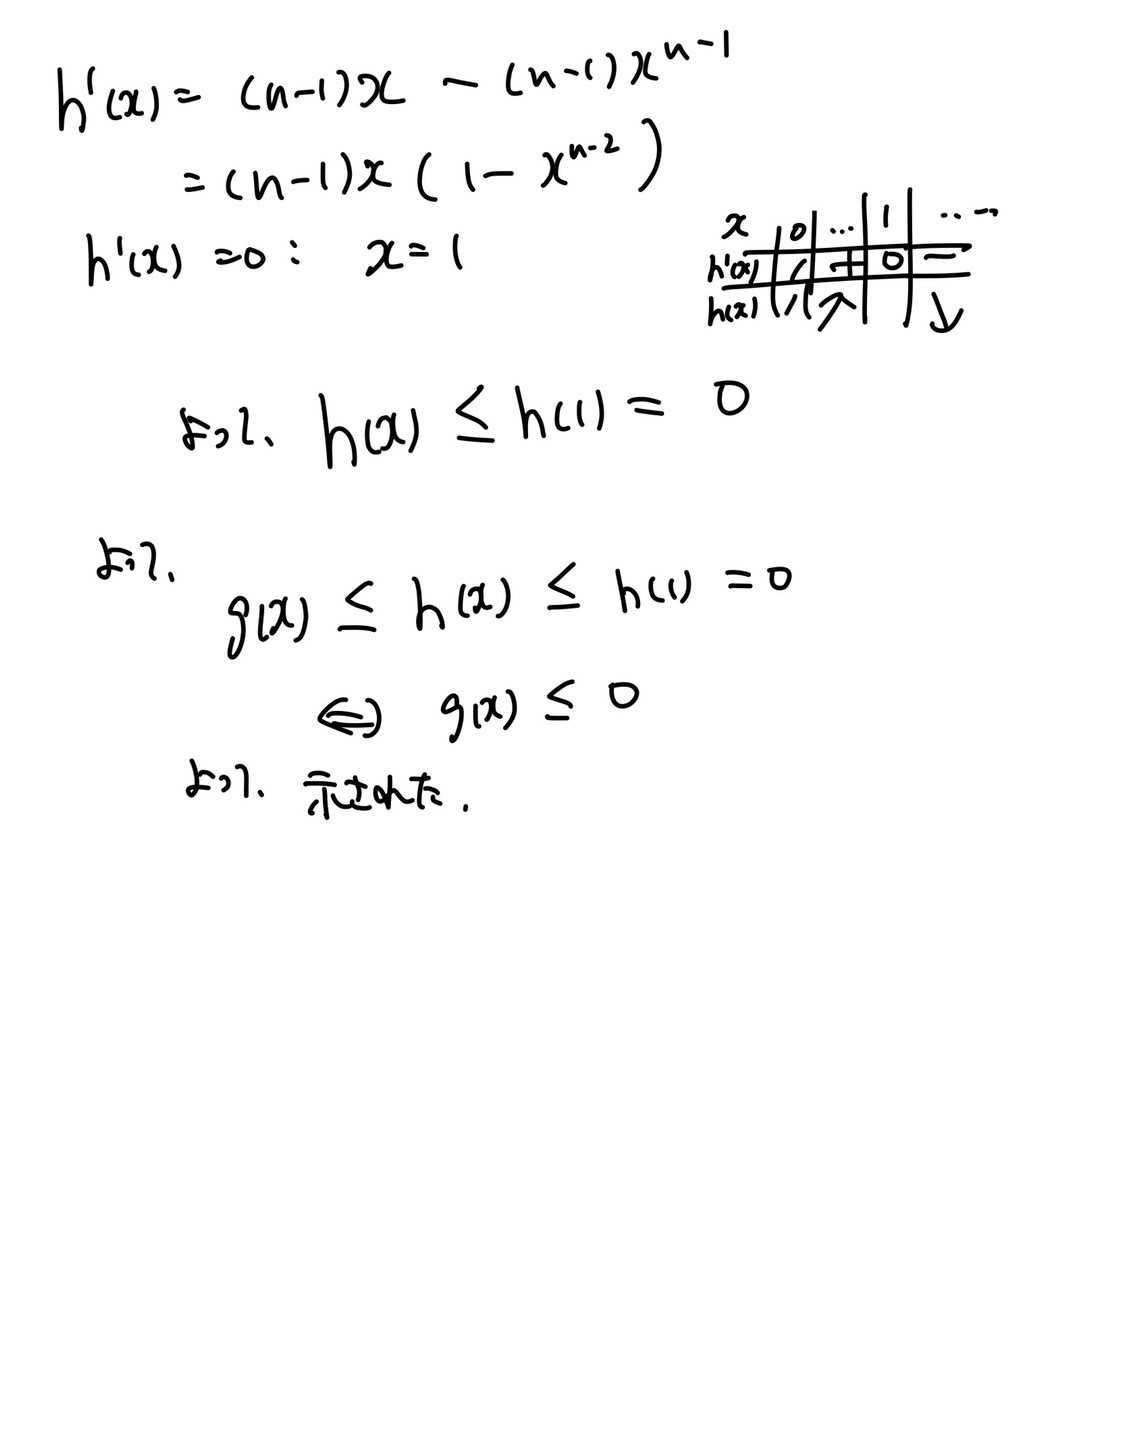 h'(x) = (n-1)x - (n-1)x^{n-1}
= (n-1)x ( 1 - x^{n-2} )
h'(x) = 0 : x = 1
x | 0 | … | 1 | …
h'(x) | / | + | 0 | -
h(x) | / | ↗ | | ↘
よって、 h(x) ≤ h(1) = 0
よって、
g(x) ≤ h(x) ≤ h(1) = 0
⇔ g(x) ≤ 0
よって、 示された.